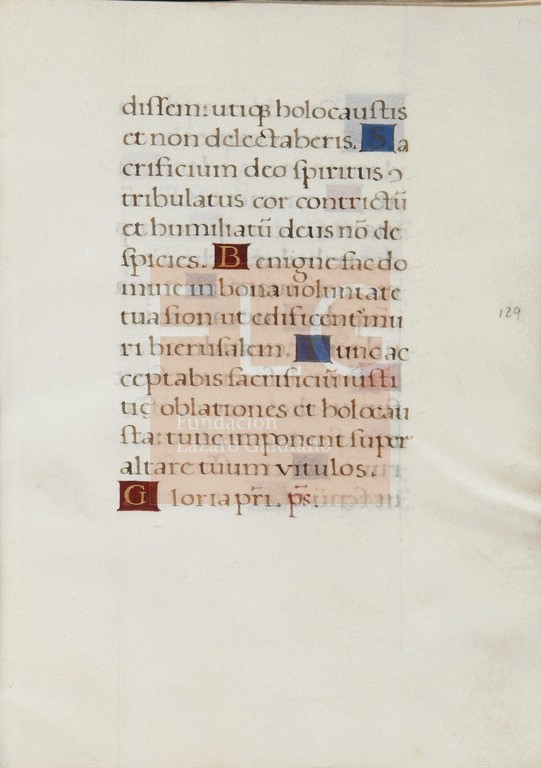 dissem: utiqȝ holocaustis
et non delectaberis. Sa
crificium deo spiritus ꝯ
tribulatus cor contrictū
et humiliatū deus nō de
spicies. Benigne fac do
mine in bona uoluntate
tua sion ut edificent mu
ri hierusalem. Tunc ac
ceptabis sacrificiū iusti
tię oblationes et holocau
sta: tunc imponent super
altare tuum vitulos.
Gloria pr̄i. ps̄.
129
FLG
Fundación
Lázaro Galdiano